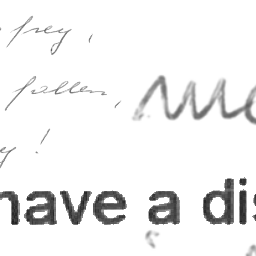 frey,
fallen,
y!
have a dis